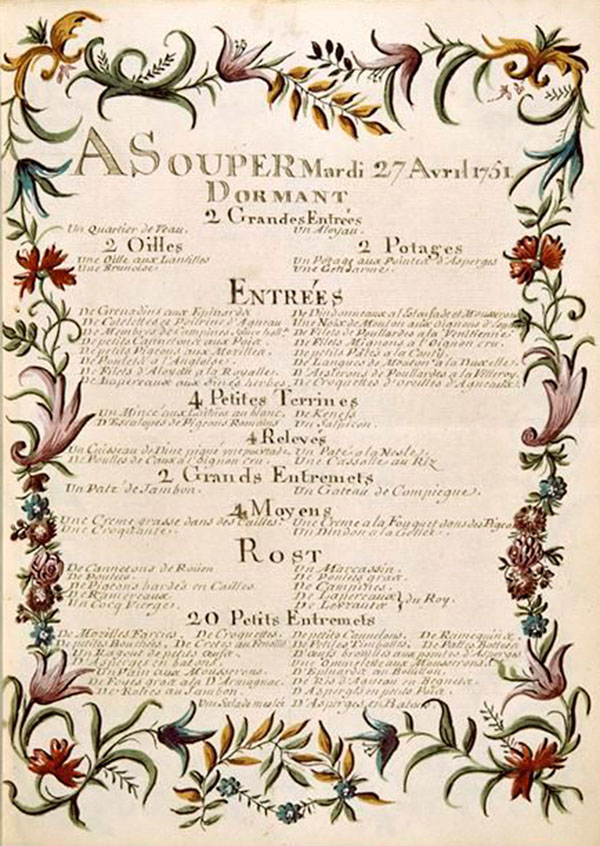 A SOUPER Mardi 27 Avril 1751.
DORMANT
2 Grandes Entrées
Un Quartier de Veau. Un Aloyau.
2 Oilles 2 Potages
Une Oille aux Lantilles Un Potage aux Pointes d'Asperges
Une Brunoise. Une Gendarme.
ENTRÉES
De Grenadins aux Epinards De Dindonneaux a
De Cotelettes et Poitrine d'Agneau Une Noix de Mouton aux oignons
De Filets de Poullardes a la
De petits Cannetons aux Pois De Filets Mignons a l'Oignon cru.
De petits Pigeons aux Morilles De petits Pâtés a la Conty.
De Poulets a l'Angloise. De Langues de Mouton a la Duxelles.
De Filets d'Aloyau a la Royalle. D'Aislerons de Poullardes a la Villeroy.
De Lapereaux aux fines herbes De Croquettes d'Oreilles d'Agneaux
4 Petites Terrines
Un Mince aux au blanc. De
D'Escalopes de Pigeons Romains Un Salpicon.
4 Relevés
Un Cuisseau de piqué Un Paté a la Nesle.
De Poulles de Caux a l'oignon cru. Une Casselle au Riz
2 Grands Entremets
Un Paté de Jambon. Un Gateau de Compiegne.
4 Moyens
Une Creme grasse dans des Cailles. Une Creme a la Fouquet dans des
Une Croquante. Un Dindon a la Gelée.
ROST
De Cannetons de Roüen Un Marcassin.
De Poulets. De Poulets gras.
De Pigeons bardés en Cailles. De
De Ramereaux. De Lapereaux } du Roy.
Un Cocq Vierge. De Levrauts
20 Petits Entremets
De Morilles Farcies. De Croquettes. De petits Cannelons. De Ramequins
De petites Bouchées. De Cretes au De Petites Timballes. De
Un Ragout de D'Œufs brouillés aux pointes d'Asperges
D'Asperges en batons. Une Ommelette aux Mousserons.
Un Pain aux Mousserons. D'Epinards au Bouillon.
De Foies gras a la D'Armagnac. De Ris d'Agneau en
De Roties au Jambon. D'Asperges en petits Pois
Un Salade meslée D'Asperges en Batons